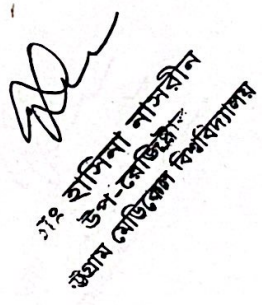 হাসিনা নাসরীন
উপ-রেজিস্ট্রার
চট্টগ্রাম মেডিকেল বিশ্ববিদ্যালয়